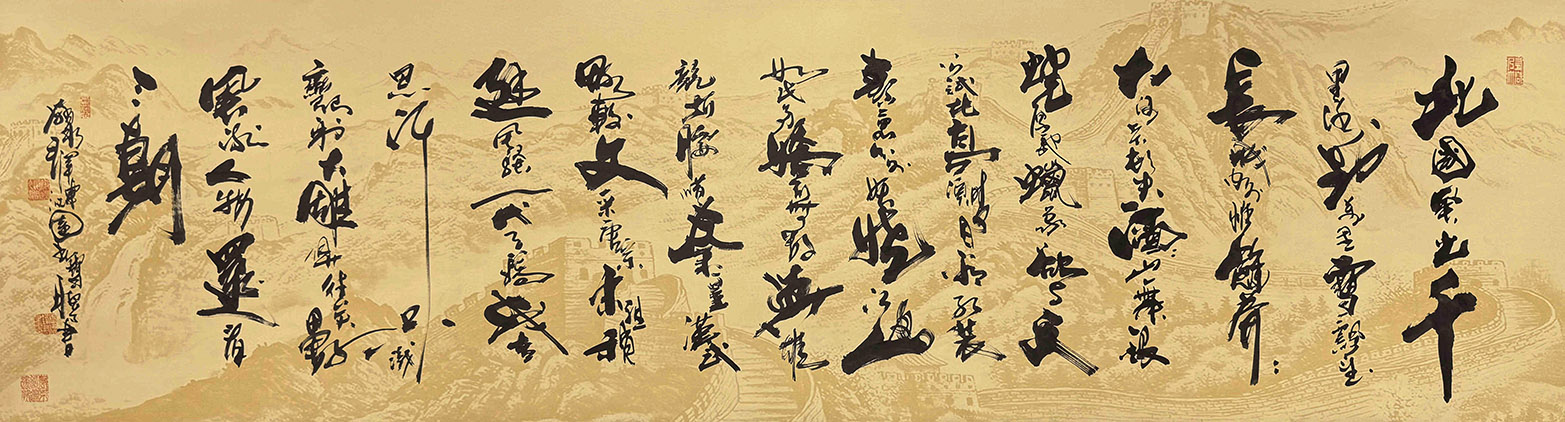 北國風光千
里冰封萬里雪飄望
長城內外惟餘莽〻
大河上下頓失滔〻山舞銀
蛇原馳蠟象欲與天
公試比高須晴日看紅裝
素裹分外妖嬈江山
如此多嬌引無數英雄
競折腰惜秦皇漢武
略輸文采唐宗宋祖稍
遜風騷一代天驕成吉
思汗只識
彎弓射大雕俱往矣數
風流人物還看
今朝